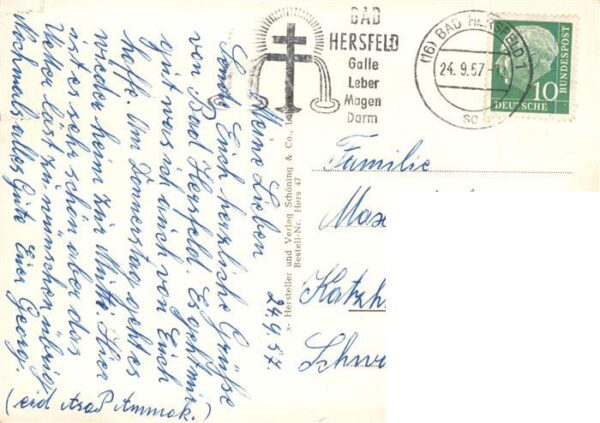 BAD
HERSFELD
Galle
Leber
Magen
Darm
(16) BAD HERSFELD 1
24.9.57
so
10
DEUTSCHE
BUNDESPOST
Familie
Max
Katzh
Schw
s- Hersteller und Verlag Schöning & Co., Lü
Bestell-Nr. Hers 47
24.9.57
Meine Lieben
Sende Euch herzliche Grüße
von Bad Hersfeld. Es geht mir
gut was ich auch von Euch
hoffe. Am Donnerstag geht es
wieder heim zur Mutti. Hier
ist es sehr schön aber das
Wetter läst zu wünschen übrig
Nochmals alles Gute Euer Georg.